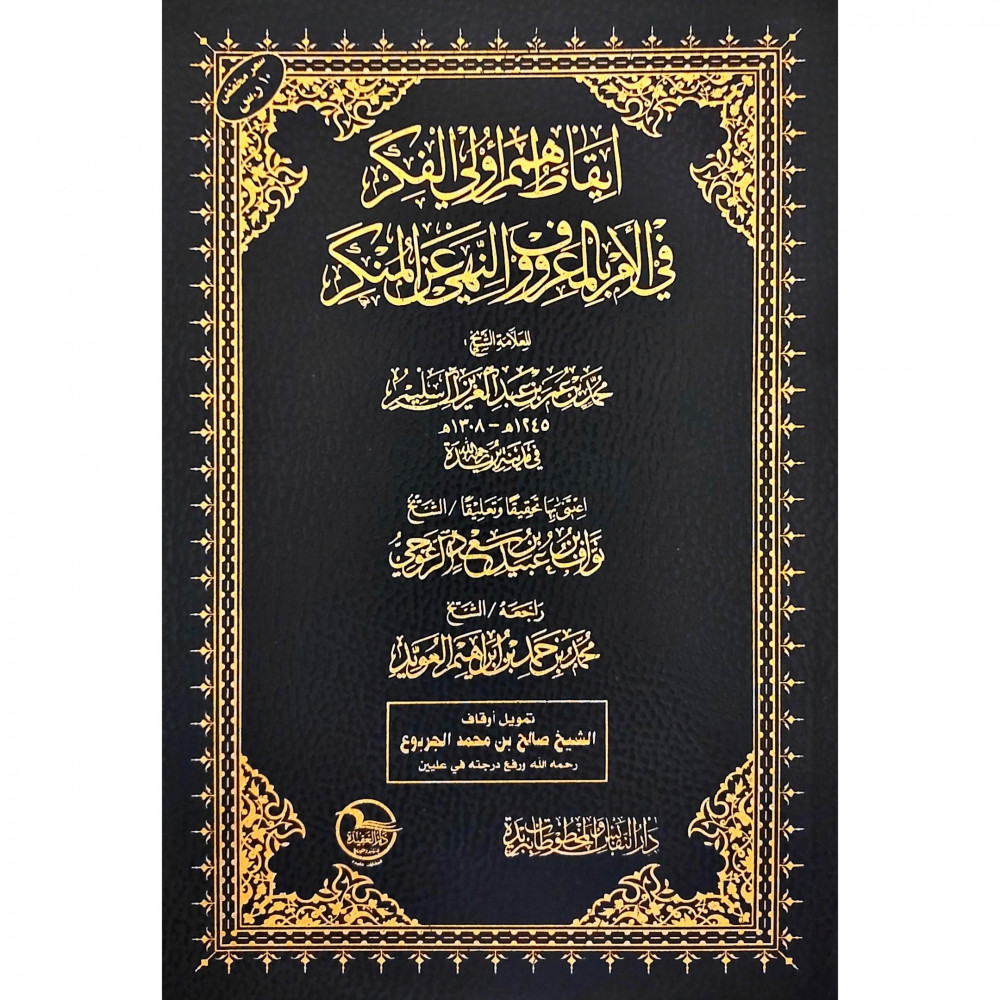 سعر مخفض
١٠ ر.س
إيقاظ همم أولي الفكر
في الأمر بالمعروف والنهي عن المنكر
للعلامة الشيخ :
محمد بن عمر بن عبد العزيز آل سليم
١٢٤٥هـ - ١٣٠٨هـ
في مدينة بريدة رحمه الله
اعتنى بها تحقيقًا وتعليقًا / الشيخ
نواف بن عبيد بن سعد الرعوجي
راجعه / الشيخ
محمد بن حمد بن إبراهيم العويد
تمويل أوقاف
الشيخ صالح بن محمد الجربوع
رحمه الله ورفع درجته في عليين
دار النفائس والمخطوطات ببريدة
دار العقيدة